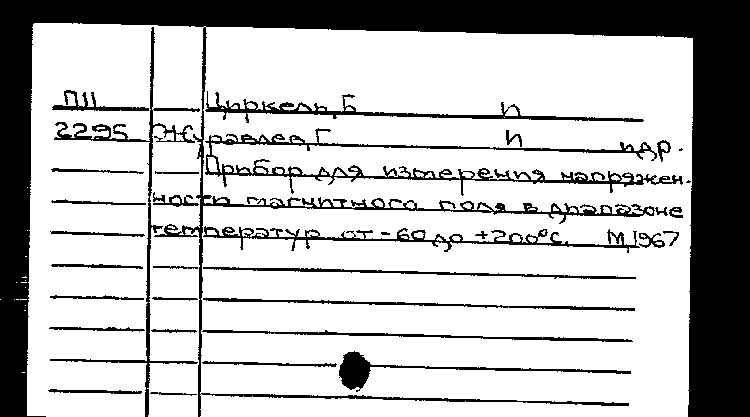 П11 Циркель, Б и
2295 Журавлев, Г. и идр.
Прибор для измерения напряжен-
ности магнитного поля в диапазоне
температур от -60 до +200°С. М, 1967